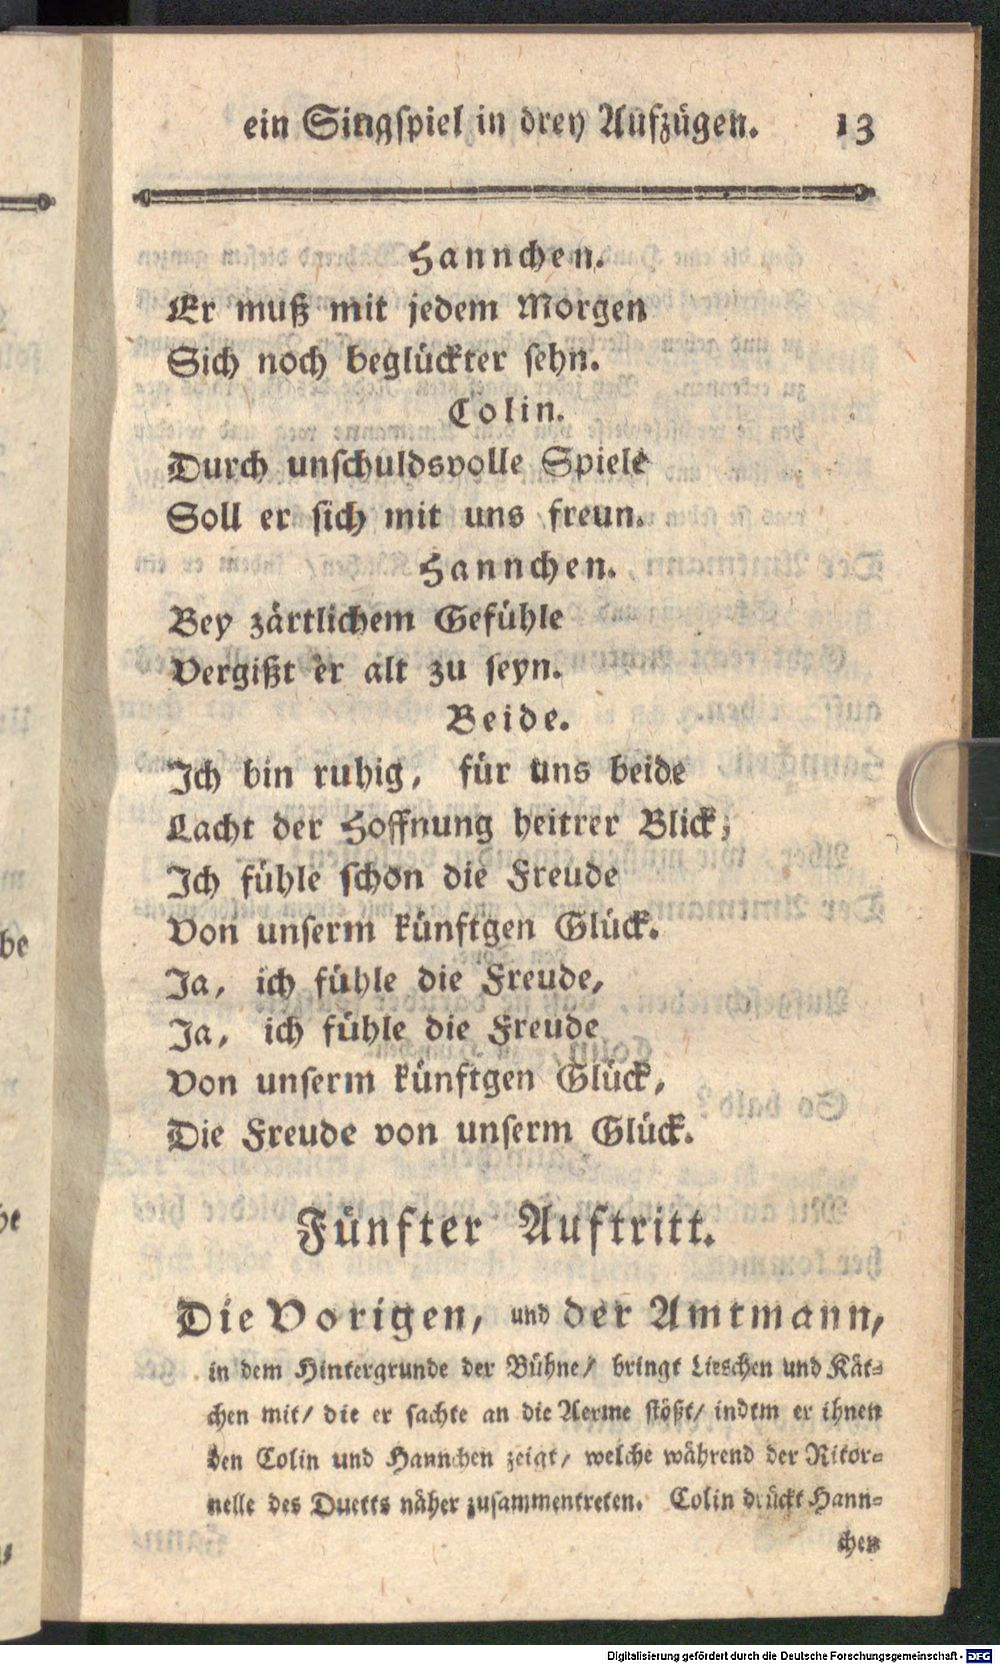 ein Singspiel in drey Aufzügen. 13
Hannchen.
Er muß mit jedem Morgen
Sich noch beglückter sehn.
Colin.
Durch unschuldsvolle Spiele
Soll er sich mit uns freun.
Hannchen.
Bey zärtlichem Gefühle
Vergißt er alt zu seyn.
Beide.
Ich bin ruhig, für uns beide
Lacht der Hoffnung heitrer Blick;
Ich fühle schon die Freude
Von unserm künftgen Glück.
Ja, ich fühle die Freude,
Ja, ich fühle die Freude
Von unserm künftgen Glück,
Die Freude von unserm Glück.
Fünfter Auftritt.
Die Vorigen, und der Amtmann,
in dem Hintergrunde der Bühne/ bringt Lieschen und Kät-
chen mit/ die er sachte an die Aerme stößt/ indem er ihnen
den Colin und Hannchen zeigt/ welche während der Ritor-
nelle des Duetts näher zusammentreten. Colin drückt Hann-
chen
Digitalisierung gefördert durch die Deutsche Forschungsgemeinschaft - DFG